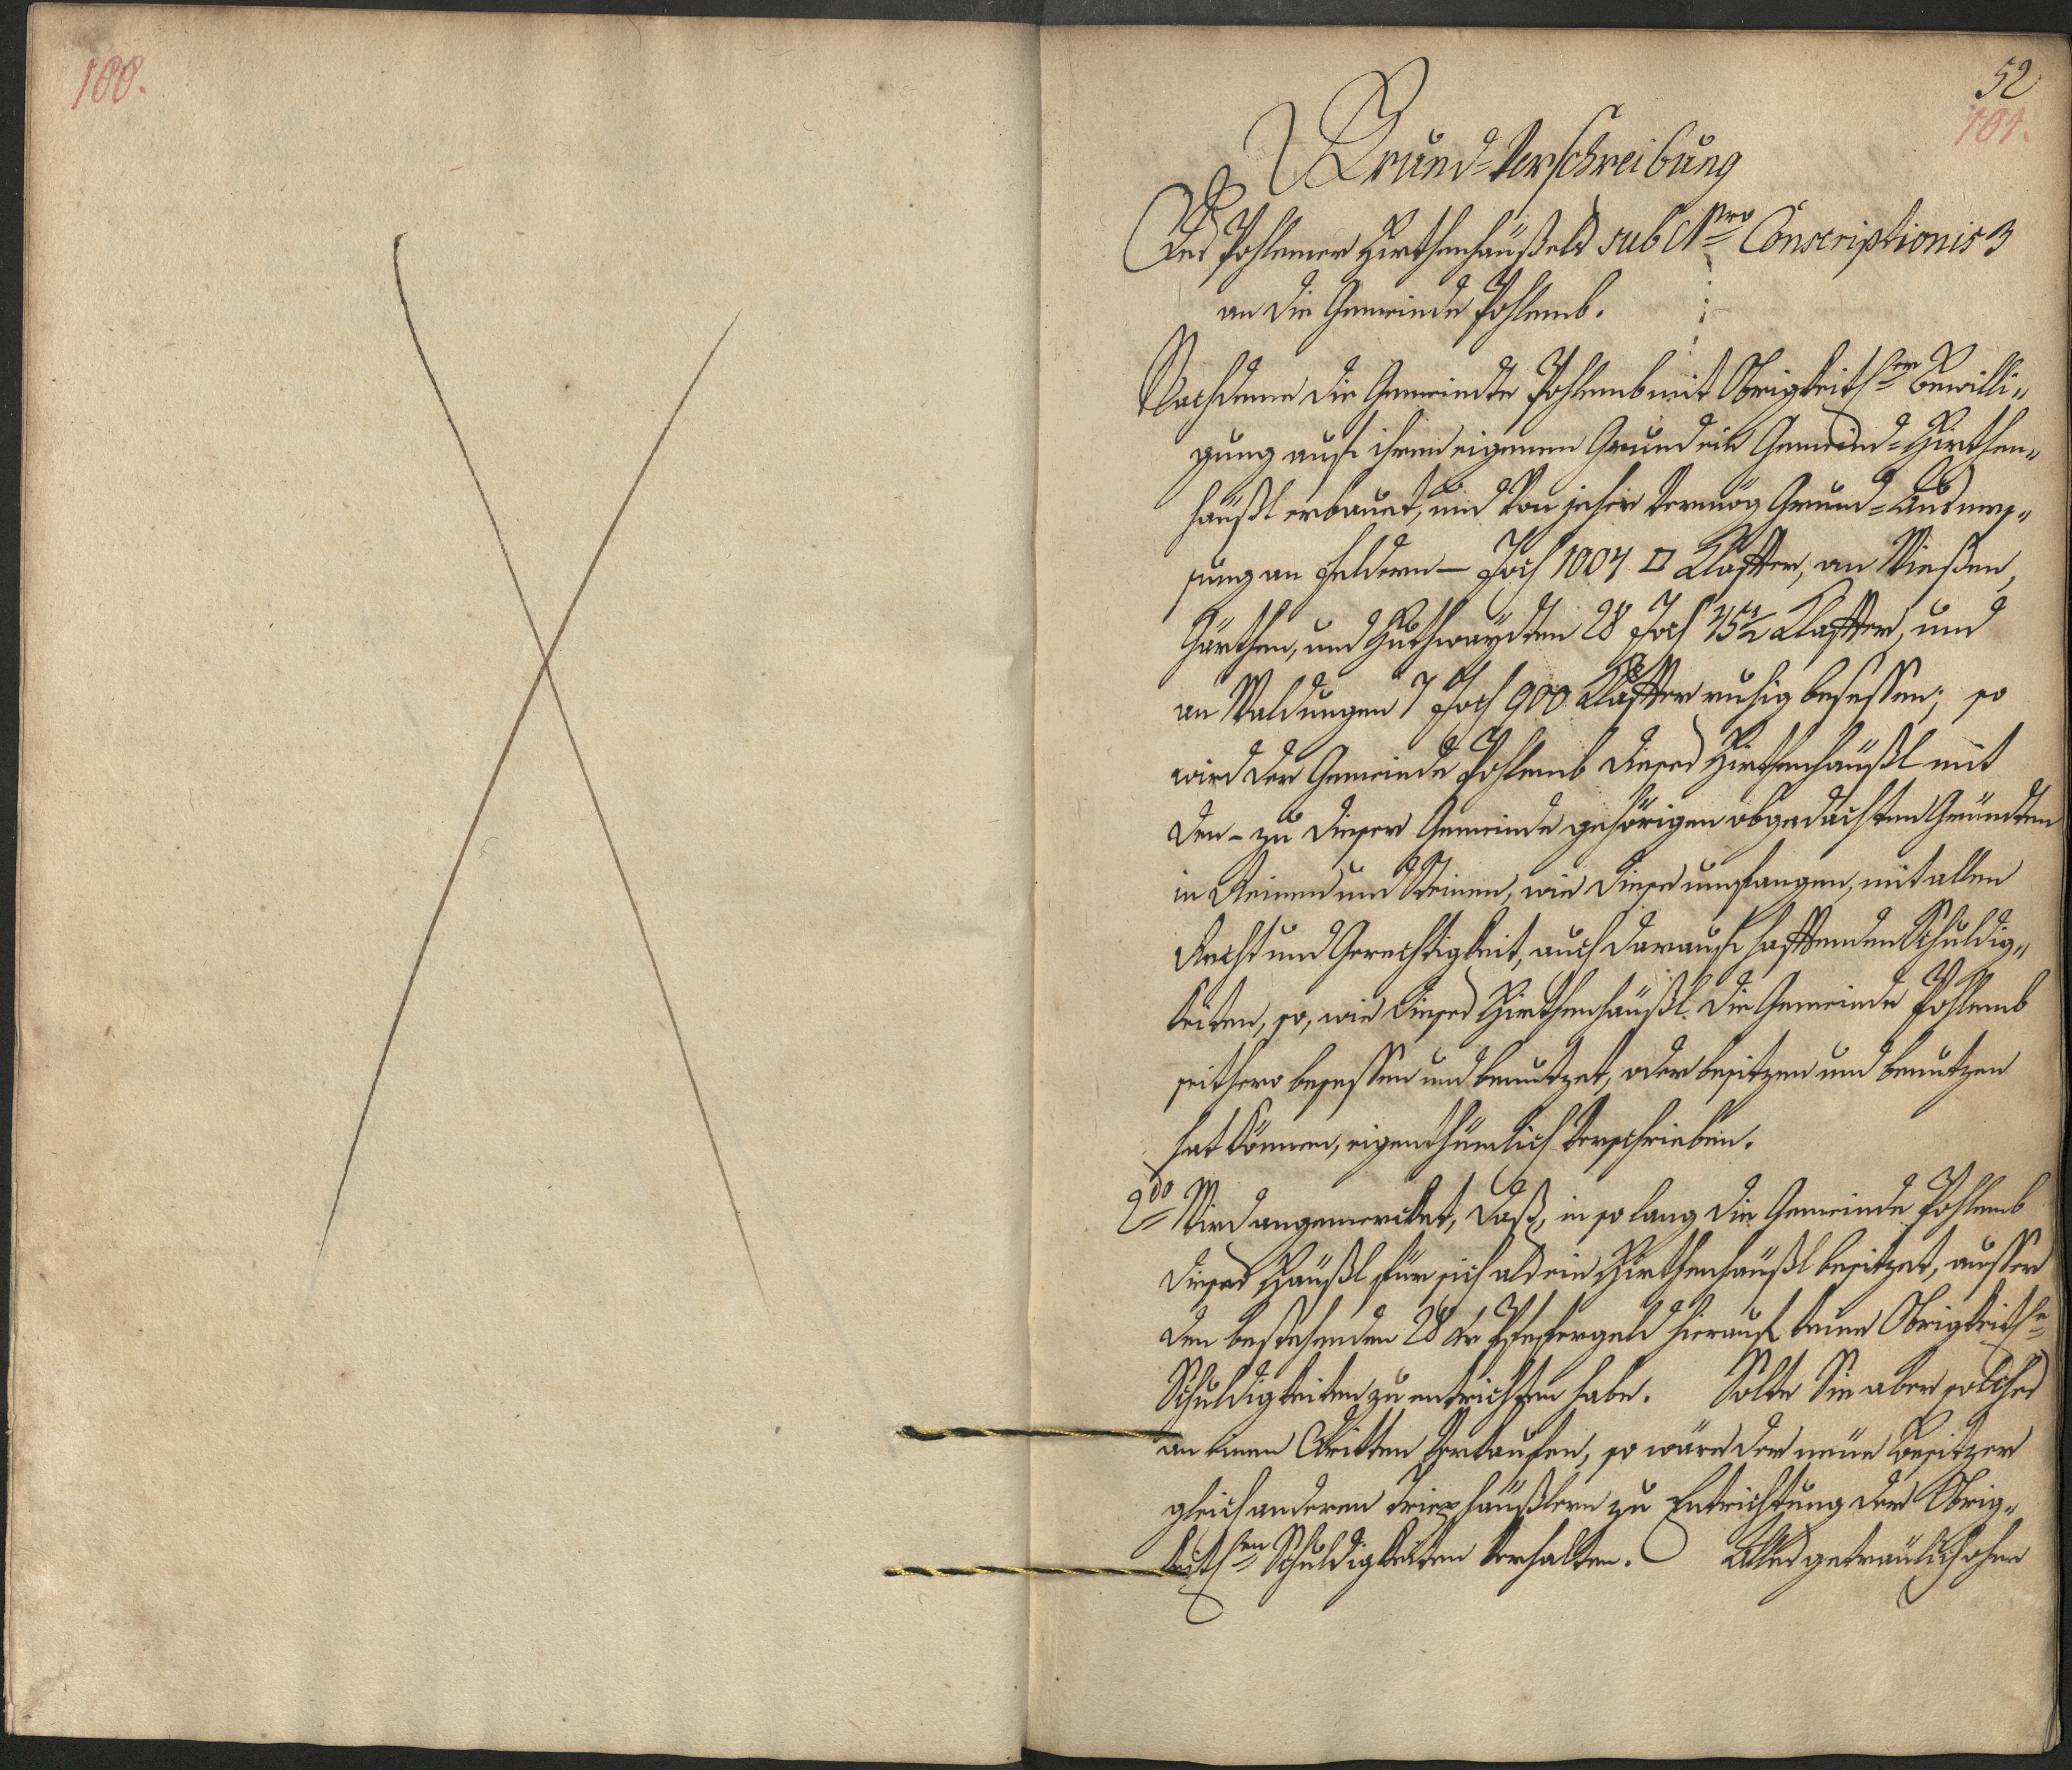 100.
52
101.
Grund-Verschreibung
Des Pohlemer Hirthenhäußels sub Nro Conscriptionis 3
an die Gemeinde Pohlemb.
Nachdeme die Gemeinde Pohlemb mit Obrigkeitler Bewilli„
gung auf ihren eigenen Grund ein Gemeind-Hirthen„
häußl erbauet, und von jeher vermög Grund-Ausmes„
sung an Feldern — Joch 1004 □ Klafter, an Wießen,
Gärthen, und Huthwaydten 28 Joch Klafter, und
an Waldungen 7 Joch 900 Klafter ruhig besessen; so
wird der Gemeinde Pohlemb dieses Hirthenhäußl mit
den - zu dieser Gemeinde gehörigen obgedachten Gründten
in Reinen und Steinen, wie diese umfangen, mit allen
Recht und Gerechtigkeit, auch darauf hafftenden Schuldig„
keiten, so, wie dieses Hirthenhäußl die Gemeinde Pohlemb
seithero besessen und benutzet, oder besitzen und benutzen
hat können, eigenthümlich verschrieben.
2do Wird angemercket, daß, in so lang die Gemeinde Pohlemb
dieses Häußl für sich als ein Hirthenhäußl besitzet, ausser
den bestehenden 28 kr hierauf keine Obrigkeitle
Schuldigkeiten zu entrichten habe. Solte Sie aber solches
an einen Dritten verkaufen, so wäre der neue Besitzer
gleich anderen häußlern zu Entrichtung der Obrig„
keitlen Schuldigkeiten verhalten. Alles getreulich ohne